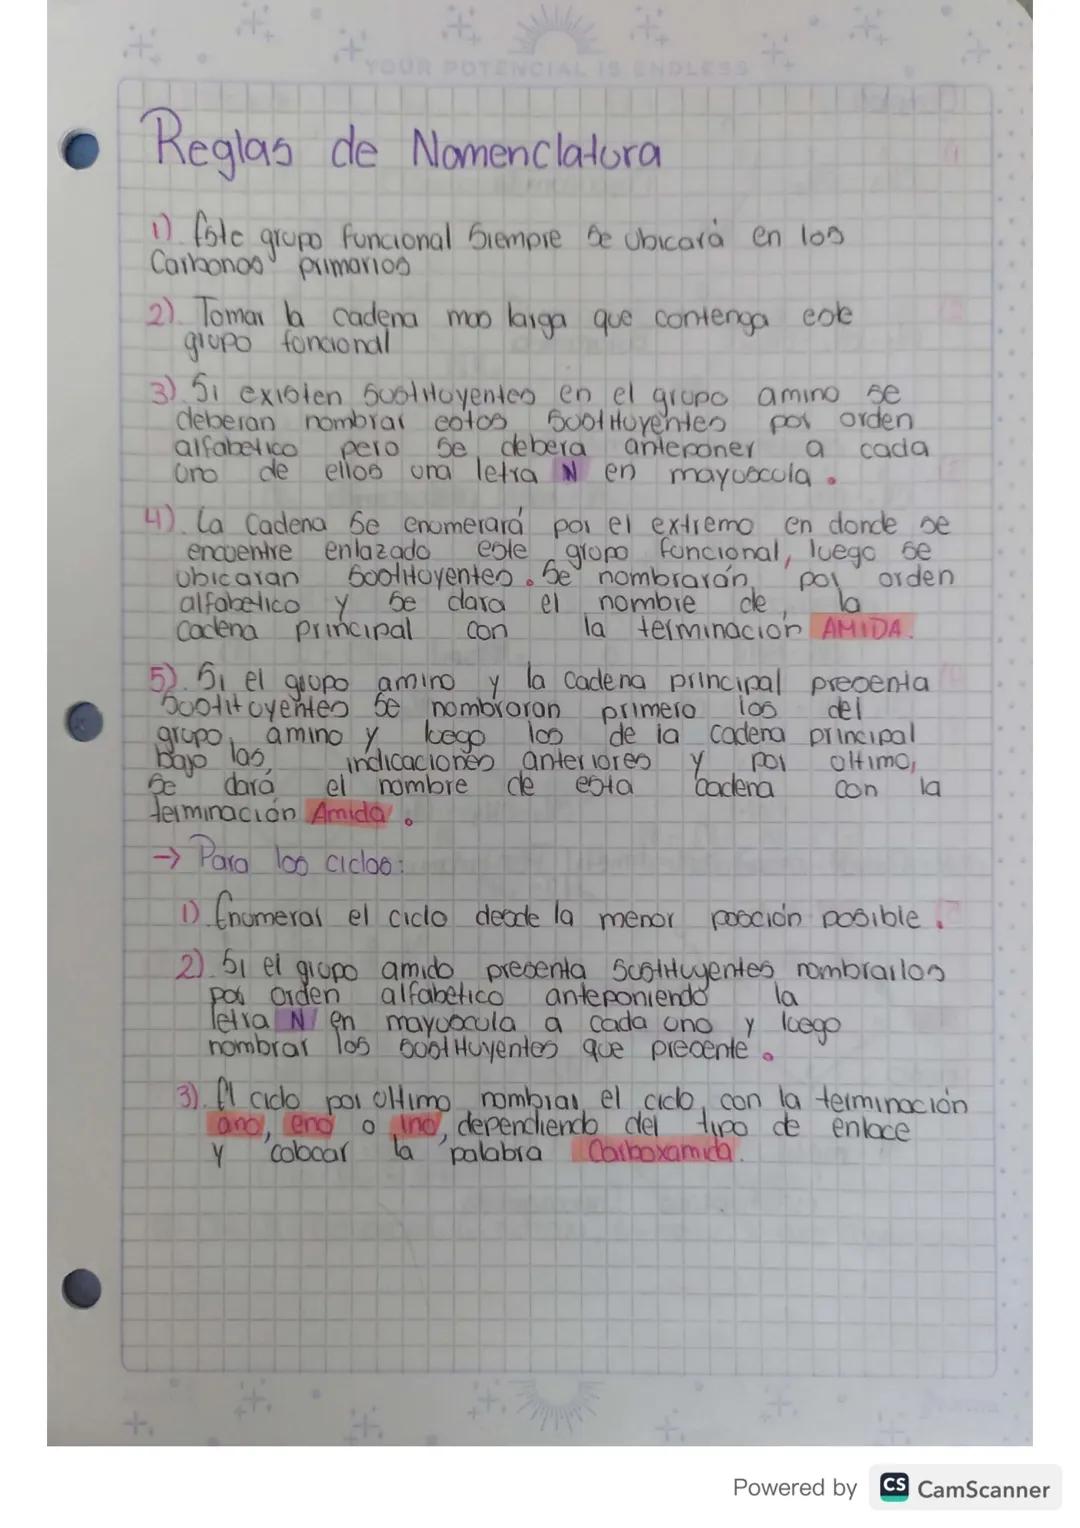 YOUR POTENCIAL IS ENDLESS
Reglas de Nomenclatura
1) Este grupo funcional Siempre se Ubicará en los
Carbonos primarios
2) Tomar la cadena mas larga que contenga este
grupo funcional
3) Si existen sustituyentes en el grupo amino se
deberan nombrar estos sustituyentes por orden
alfabetico pero se debera anteponer a cada
uno de ellos una letra N en mayuscula.
4) La Cadena se enumerará por el extremo en donde se
encuentre enlazado este grupo funcional, luego se
ubicaran sustituyentes. Se nombrarán, por orden
alfabetico y se dara el nombre de la
Cadena principal con la terminacion AMIDA.
5) Si el grupo amino y la cadena principal presenta
Sustituyentes se nombraran primero los del
grupo amino y luego los de la cadena principal
Bajo las, indicaciones anteriores y por ultimo,
Se dará el nombre de esta cadena con la
terminación Amida.
→ Para los ciclos:
1) Enumerar el ciclo desde la menor posción posible.
2) Si el grupo amido presenta sustituyentes nombrarlos
por orden alfabetico anteponiendo la
letra N en mayuscula a cada uno y luego
nombrar los sustituyentes que presente.
3) El ciclo por ultimo nombrar el ciclo con la terminación
ano, eno o ino, dependiendo del tipo de enlace
y colocar la palabra Carboxamida.
Powered by CS CamScanner